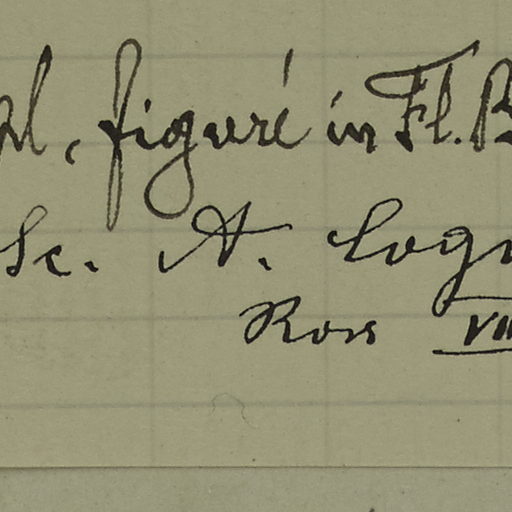 figuré in Fl. B
Sc. A. Cogn
Ross VII